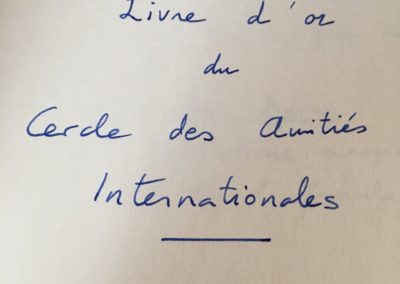 Livre d'or
du
Cercle des Amitiés
Internationales